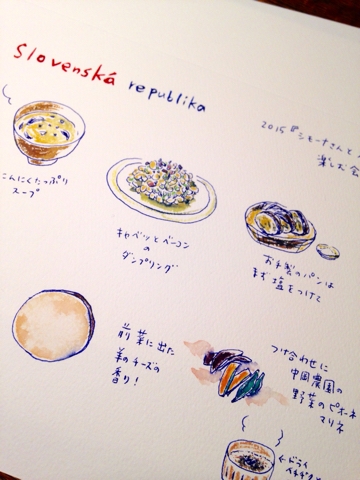 Slovenská republika
2015年 シモーナさんと
楽しむ会
こんにくたっぷり
スープ
キャベツとベーコン
の
ダンプリング
お手製のパンは
まず塩をつけて
前菜に出た
羊のチーズの
香り!
つけ合わせに
中国農園の
野菜のピオーネ
マリネ
←ドライ